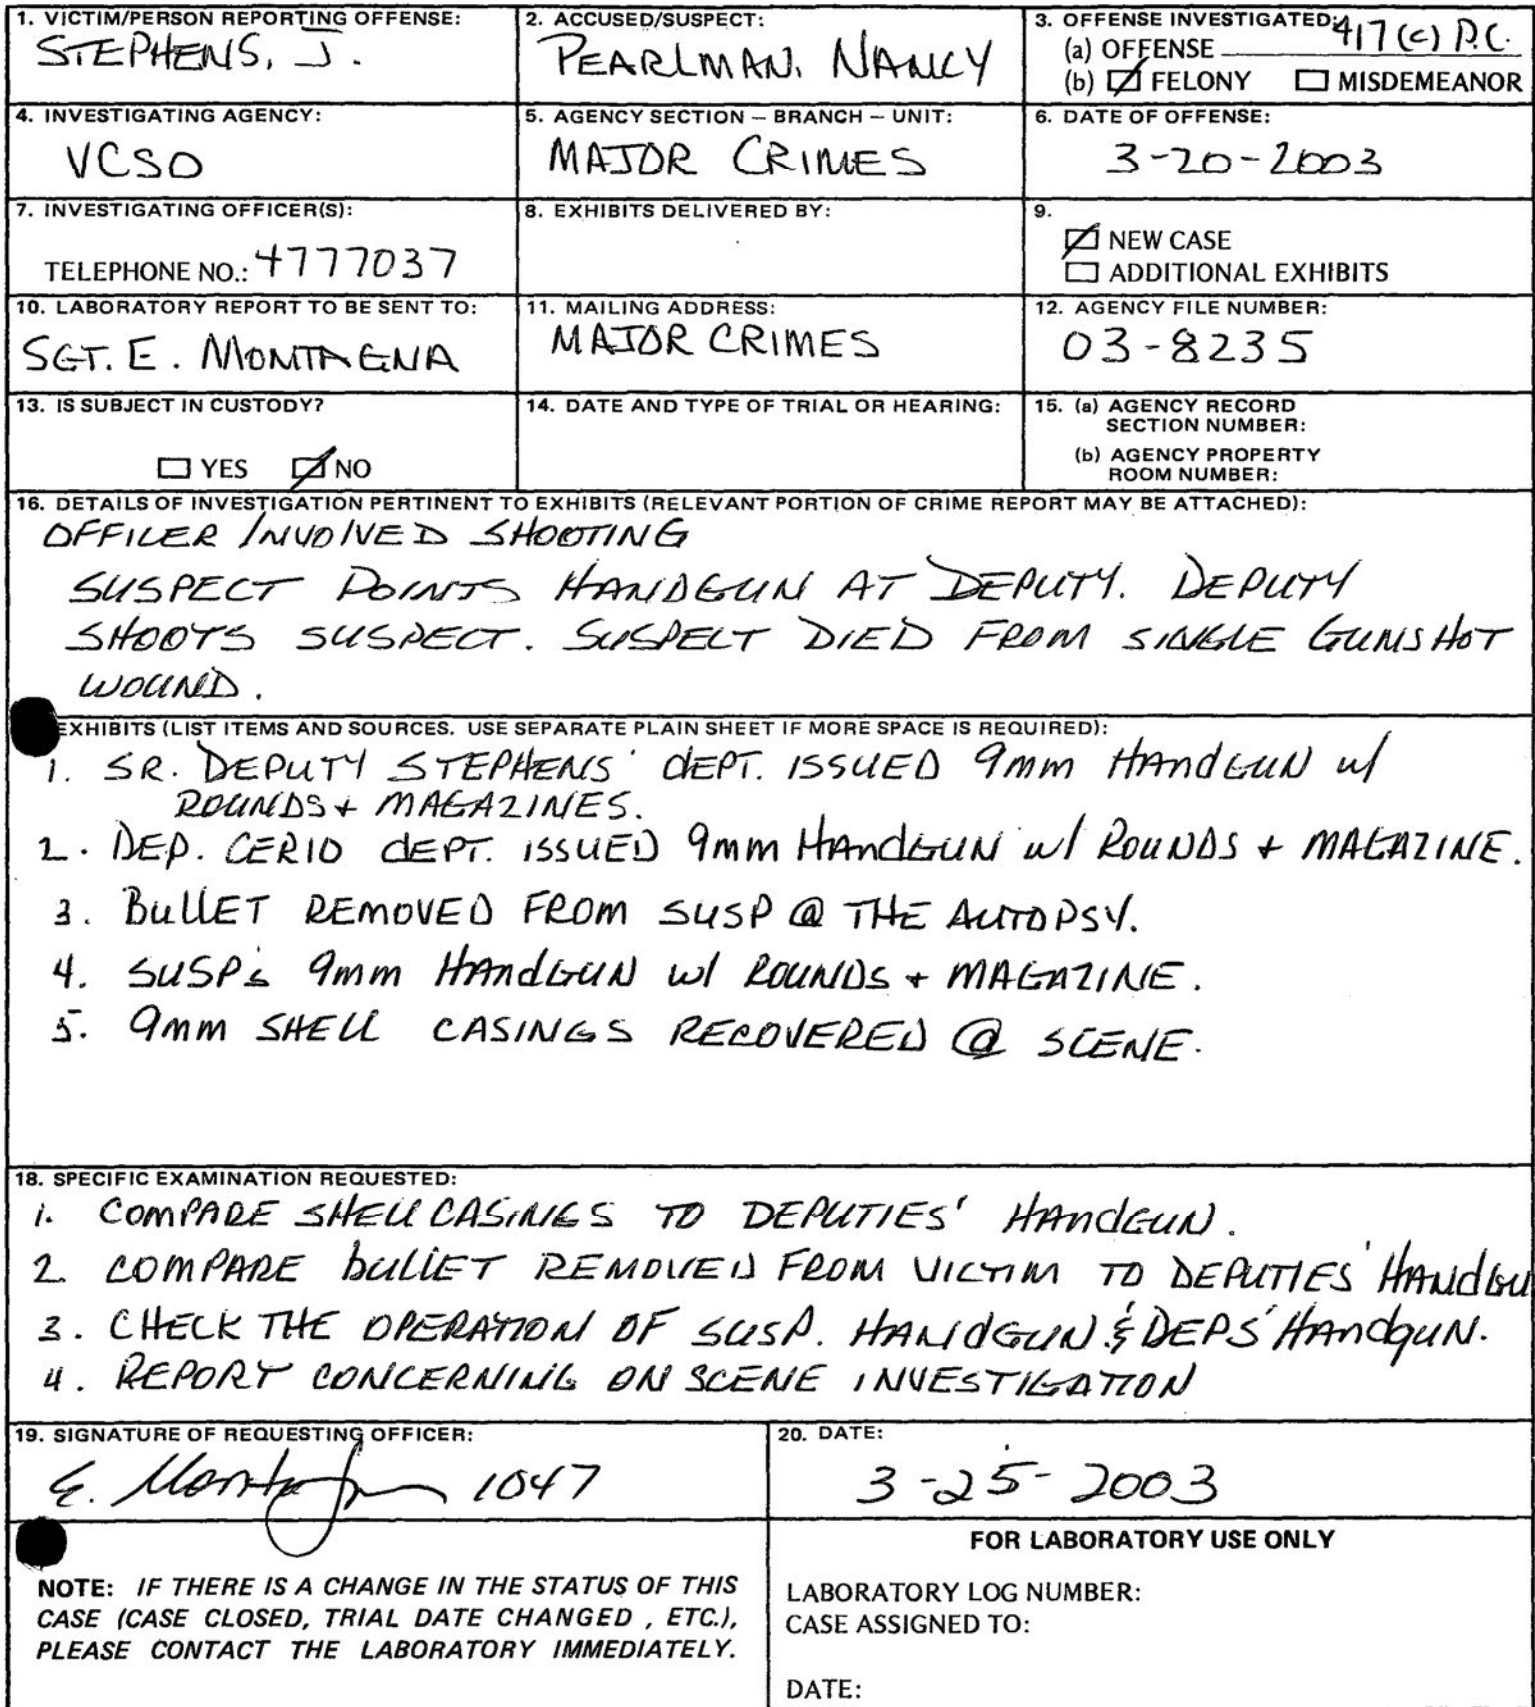 1. VICTIM/PERSON REPORTING OFFENSE:
STEPHENS, J.
2. ACCUSED/SUSPECT:
PEARLMAN, NANCY
3. OFFENSE INVESTIGATED:
(a) OFFENSE 417(c) P.C.
(b) FELONY MISDEMEANOR
4. INVESTIGATING AGENCY:
VCSO
5. AGENCY SECTION – BRANCH – UNIT:
MAJOR CRIMES
6. DATE OF OFFENSE:
3-20-2003
7. INVESTIGATING OFFICER(S):
TELEPHONE NO.: 4777037
8. EXHIBITS DELIVERED BY:
9.
NEW CASE
ADDITIONAL EXHIBITS
10. LABORATORY REPORT TO BE SENT TO:
SGT. E. MONTAGNA
11. MAILING ADDRESS:
MAJOR CRIMES
12. AGENCY FILE NUMBER:
03-8235
13. IS SUBJECT IN CUSTODY?
YES NO
14. DATE AND TYPE OF TRIAL OR HEARING:
15. (a) AGENCY RECORD
SECTION NUMBER:
(b) AGENCY PROPERTY
ROOM NUMBER:
16. DETAILS OF INVESTIGATION PERTINENT TO EXHIBITS (RELEVANT PORTION OF CRIME REPORT MAY BE ATTACHED):
OFFICER INVOLVED SHOOTING
SUSPECT POINTS HANDGUN AT DEPUTY. DEPUTY
SHOOTS SUSPECT. SUSPECT DIED FROM SINGLE GUNSHOT
WOUND.
EXHIBITS (LIST ITEMS AND SOURCES. USE SEPARATE PLAIN SHEET IF MORE SPACE IS REQUIRED):
1. SR. DEPUTY STEPHENS' DEPT. ISSUED 9mm HANDGUN w/
ROUNDS + MAGAZINES.
2. DEP. CERIO DEPT. ISSUED 9mm HANDGUN w/ ROUNDS + MAGAZINE.
3. BULLET REMOVED FROM SUSP @ THE AUTOPSY.
4. SUSP's 9mm HANDGUN w/ ROUNDS + MAGAZINE.
5. 9mm SHELL CASINGS RECOVERED @ SCENE.
18. SPECIFIC EXAMINATION REQUESTED:
1. COMPARE SHELL CASINGS TO DEPUTIES' HANDGUN.
2 COMPARE BULLET REMOVED FROM VICTIM TO DEPUTIES' HANDGU
3. CHECK THE OPERATION OF SUSP. HANDGUN & DEPS' HANDGUN.
4. REPORT CONCERNING ON SCENE INVESTIGATION
19. SIGNATURE OF REQUESTING OFFICER:
E. Montagna 1047
20. DATE:
3-25-2003
NOTE: IF THERE IS A CHANGE IN THE STATUS OF THIS
CASE (CASE CLOSED, TRIAL DATE CHANGED , ETC.),
PLEASE CONTACT THE LABORATORY IMMEDIATELY.
FOR LABORATORY USE ONLY
LABORATORY LOG NUMBER:
CASE ASSIGNED TO:
DATE: